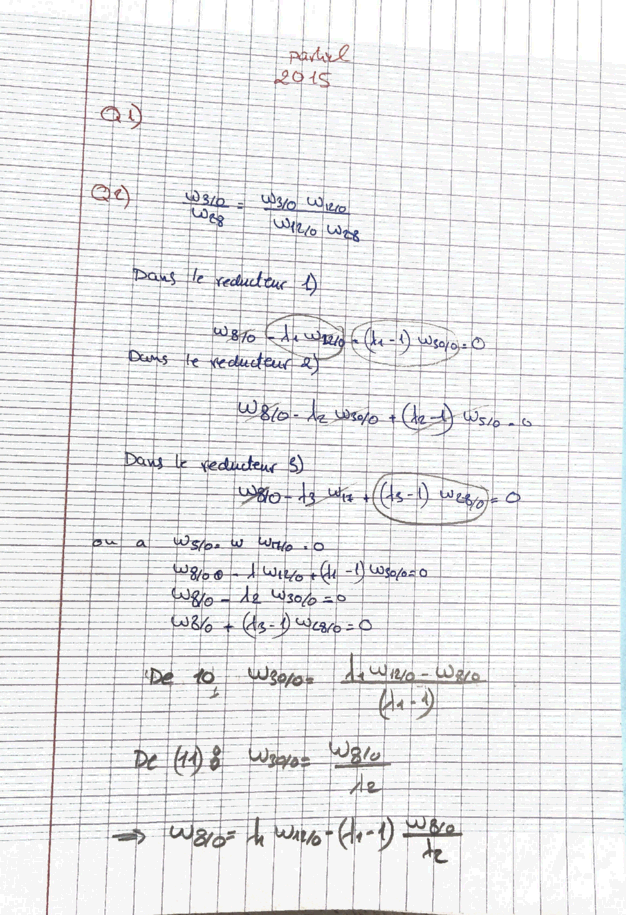 partiel
2015
Q1)
Q2) ω3/0 / ω28 = ω3/0 ω12/0 / ω12/0 ω28
Dans le reducteur 1)
ω8/0 - λ1 ω12/0 + (λ1-1) ω30/0 = 0
Dans le reducteur 2)
ω8/0 - λ2 ω30/0 + (λ2-1) ω5/0 = 0
Dans le reducteur 3)
ω8/0 - λ3 ω17 + (λ3-1) ω28/0 = 0
on a ω5/0 = ω = 0
ω8/0 - λ ω12/0 + (λ1-1) ω30/0 = 0
ω8/0 - λ2 ω30/0 = 0
ω8/0 + (λ3-1) ω28/0 = 0
De 10, ω30/0 = λ1 ω12/0 - ω8/0 / (λ1-1)
De (11) : ω30/0 = ω8/0 / λ2
⇒ ω8/0 = λ1 ω12/0 - (λ1-1) ω8/0 / λ2